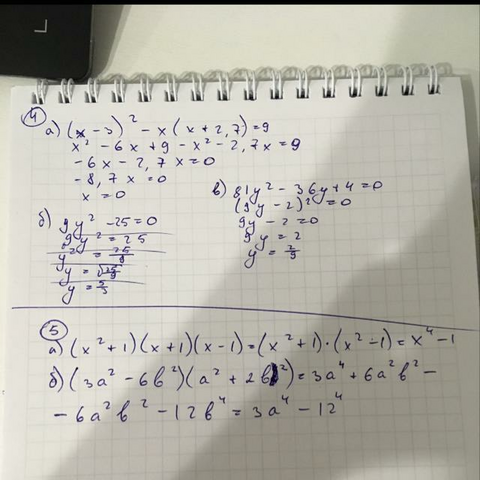 4
а) (x - 3)² - x(x + 2,7) = 9
x² - 6x + 9 - x² - 2,7x = 9
-6x - 2,7x = 0
-8,7x = 0
x = 0
б) 9y² - 25 = 0
9y² = 25
y² = 25/9
y = √25/9
y = 5/3
в) 81y² - 36y + 4 = 0
(9y - 2)² = 0
9y - 2 = 0
9y = 2
y = 2/9
5
а) (x² + 1)(x + 1)(x - 1) = (x² + 1)·(x² - 1) = x⁴ - 1
б) (3a² - 6b²)(a² + 2b²) = 3a⁴ + 6a²b² -
- 6a²b² - 12b⁴ = 3a⁴ - 12⁴